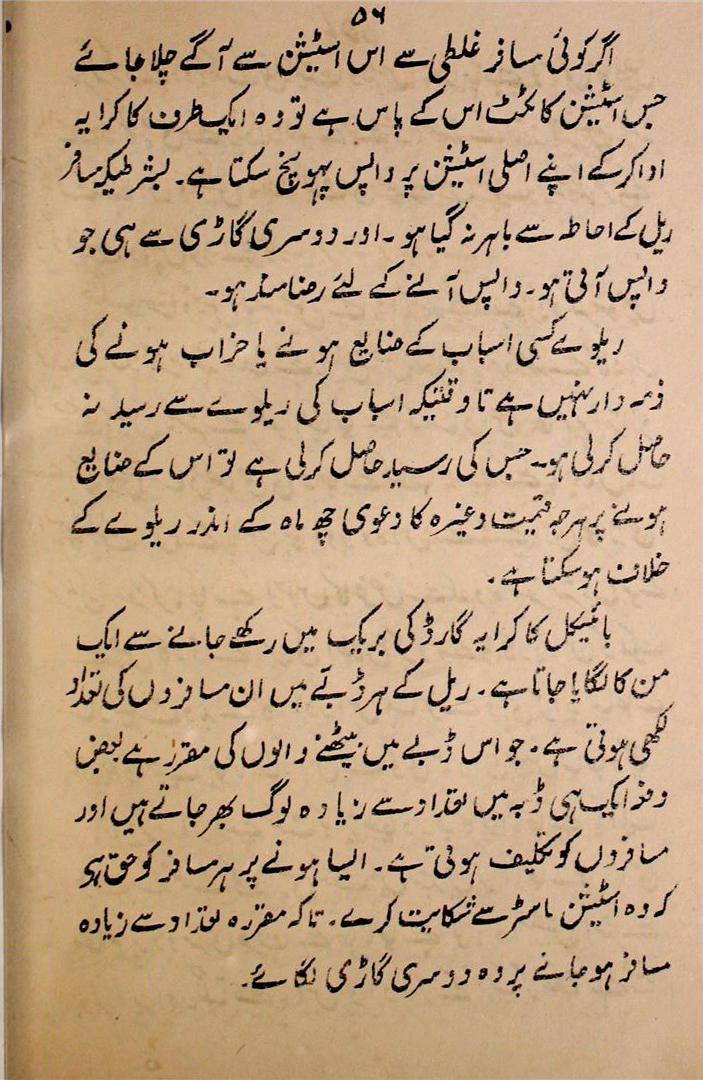 ۵۶
اگر کوئی مسافر غلطی سے اس اسٹیشن سے آگے چلا جائے
جس اسٹیشن کا ٹکٹ اس کے پاس ہے تو وہ ایک طرف کا کرایہ
ادا کر کے اپنے اصلی اسٹیشن پر واپس پہونچ سکتا ہے۔ بشرطیکہ مسافر
ریل کے احاطہ سے باہر نہ گیا ہو۔ اور دوسری گاڑی سے ہی جو
واپس آتی ہو۔ واپس آنے کے لئے رضامند ہو۔
ریلوے کسی اسباب کے ضایع ہونے یا خراب ہونے کی
ذمہ دار نہیں ہے تاوقتیکہ اسباب کی ریلوے سے رسید نہ
حاصل کرلی ہو۔ جس کی رسید حاصل کرلی ہے تو اس کے ضایع
ہونے پر ہرجہ قیمت وغیرہ کا دعوی چھ ماہ کے اندر ریلوے کے
خلاف ہوسکتا ہے۔
بائیکل کا کرایہ گارڈ کی بریک میں رکھے جانے سے ایک
من کا لگایا جاتا ہے۔ ریل کے ہر ڈبے میں ان مسافروں کی تعداد
لکھی ہوتی ہے۔ جو اس ڈبے میں بیٹھنے والوں کی مقرر ہے بعض
دفعہ ایک ہی ڈبہ میں تعداد سے زیادہ لوگ بھر جاتے ہیں اور
مسافروں کو تکلیف ہوتی ہے۔ ایسا ہونے پر ہر مسافر کو حق ہی
کہ وہ اسٹیشن ماسٹر سے شکایت کرے۔ تاکہ مقررہ تعداد سے زیادہ
مسافر ہوجانے پر وہ دوسری گاڑی لگائے۔